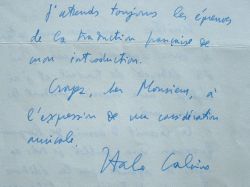 J'attends toujours les épreuves
de la traduction française de
mon introduction.
Croyez, cher Monsieur, à
l'expression de ma considération
amicale.
Italo Calvino